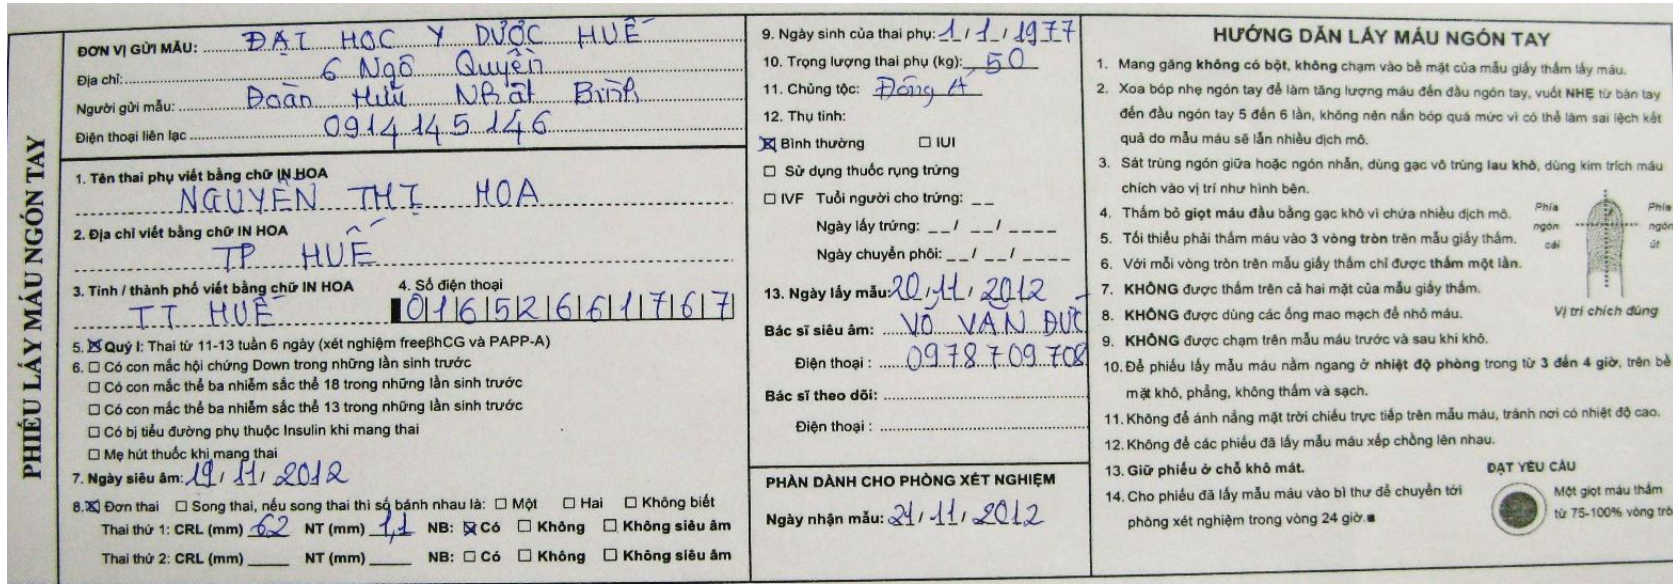 PHIẾU LẤY MÁU NGÓN TAY
ĐƠN VỊ GỬI MẪU: ĐẠI HỌC Y DƯỢC HUẾ
Địa chỉ: 6 Ngô Quyền
Người gửi mẫu: Đoàn Hữu Nhật Bình
Điện thoại liên lạc 0914 145 146
1. Tên thai phụ viết bằng chữ IN HOA
NGUYỄN THỊ HOA
2. Địa chỉ viết bằng chữ IN HOA
TP HUẾ
3. Tỉnh / thành phố viết bằng chữ IN HOA 4. Số điện thoại
TT HUẾ 01652661767
5. ☒ Quý I: Thai từ 11-13 tuần 6 ngày (xét nghiệm freeβhCG và PAPP-A)
6. ☐ Có con mắc hội chứng Down trong những lần sinh trước
☐ Có con mắc thể ba nhiễm sắc thể 18 trong những lần sinh trước
☐ Có con mắc thể ba nhiễm sắc thể 13 trong những lần sinh trước
☐ Có bị tiểu đường phụ thuộc Insulin khi mang thai
☐ Mẹ hút thuốc khi mang thai
7. Ngày siêu âm: 19/11/2012
8. ☒ Đơn thai ☐ Song thai, nếu song thai thì số bánh nhau là: ☐ Một ☐ Hai ☐ Không biết
Thai thứ 1: CRL (mm) 62 NT (mm) 1,1 NB: ☒ Có ☐ Không ☐ Không siêu âm
Thai thứ 2: CRL (mm) ____ NT (mm) ____ NB: ☐ Có ☐ Không ☐ Không siêu âm
9. Ngày sinh của thai phụ: 1/1/1977
10. Trọng lượng thai phụ (kg): 50
11. Chủng tộc: Đông Á
12. Thụ tinh:
☒ Bình thường ☐ IUI
☐ Sử dụng thuốc rụng trứng
☐ IVF Tuổi người cho trứng: _ _
Ngày lấy trứng: _ _/ _ _/ _ _ _ _
Ngày chuyển phôi: _ _/ _ _/ _ _ _ _
13. Ngày lấy mẫu: 20/11/2012
Bác sĩ siêu âm: VÕ VĂN ĐỨC
Điện thoại : 0978 709 708
Bác sĩ theo dõi:
Điện thoại :
PHẦN DÀNH CHO PHÒNG XÉT NGHIỆM
Ngày nhận mẫu: 21/11/2012
HƯỚNG DẪN LẤY MÁU NGÓN TAY
1. Mang găng không có bột, không chạm vào bề mặt của mẫu giấy thấm lấy máu.
2. Xoa bóp nhẹ ngón tay để làm tăng lượng máu đến đầu ngón tay, vuốt NHẸ từ bàn tay
đến đầu ngón tay 5 đến 6 lần, không nên nắn bóp quá mức vì có thể làm sai lệch kết
quả do mẫu máu sẽ lẫn nhiều dịch mô.
3. Sát trùng ngón giữa hoặc ngón nhẫn, dùng gạc vô trùng lau khô, dùng kim trích máu
chích vào vị trí như hình bên.
4. Thấm bỏ giọt máu đầu bằng gạc khô vì chứa nhiều dịch mô.
5. Tối thiểu phải thấm máu vào 3 vòng tròn trên mẫu giấy thấm.
6. Với mỗi vòng tròn trên mẫu giấy thấm chỉ được thấm một lần.
7. KHÔNG được thấm trên cả hai mặt của mẫu giấy thấm.
8. KHÔNG được dùng các ống mao mạch để nhỏ máu.
9. KHÔNG được chạm trên mẫu máu trước và sau khi khô.
10. Để phiếu lấy mẫu máu nằm ngang ở nhiệt độ phòng trong từ 3 đến 4 giờ, trên bề
mặt khô, phẳng, không thấm và sạch.
11. Không để ánh nắng mặt trời chiếu trực tiếp trên mẫu máu, tránh nơi có nhiệt độ cao.
12. Không để các phiếu đã lấy mẫu máu xếp chồng lên nhau.
13. Giữ phiếu ở chỗ khô mát.
14. Cho phiếu đã lấy mẫu máu vào bì thư để chuyển tới
phòng xét nghiệm trong vòng 24 giờ.■
Phía
ngón
cái
Phía
ngón
út
Vị trí chích đúng
ĐẠT YÊU CẦU
Một giọt máu thấm
từ 75-100% vòng trò